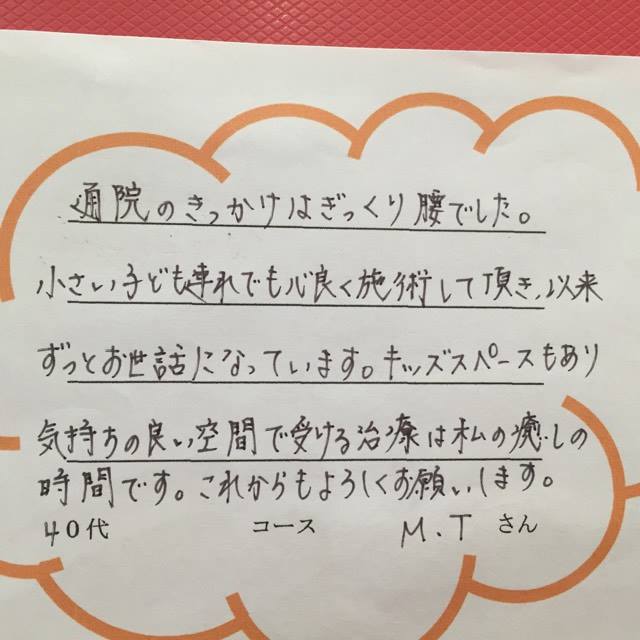 通院のきっかけはぎっくり腰でした。
小さい子ども連れでも心良く施術して頂き、以来
ずっとお世話になっています。キッズスペースもあり
気持ちの良い空間で受ける治療は私の癒しの
時間です。これからもよろしくお願いします。
40代 コース M.T さん